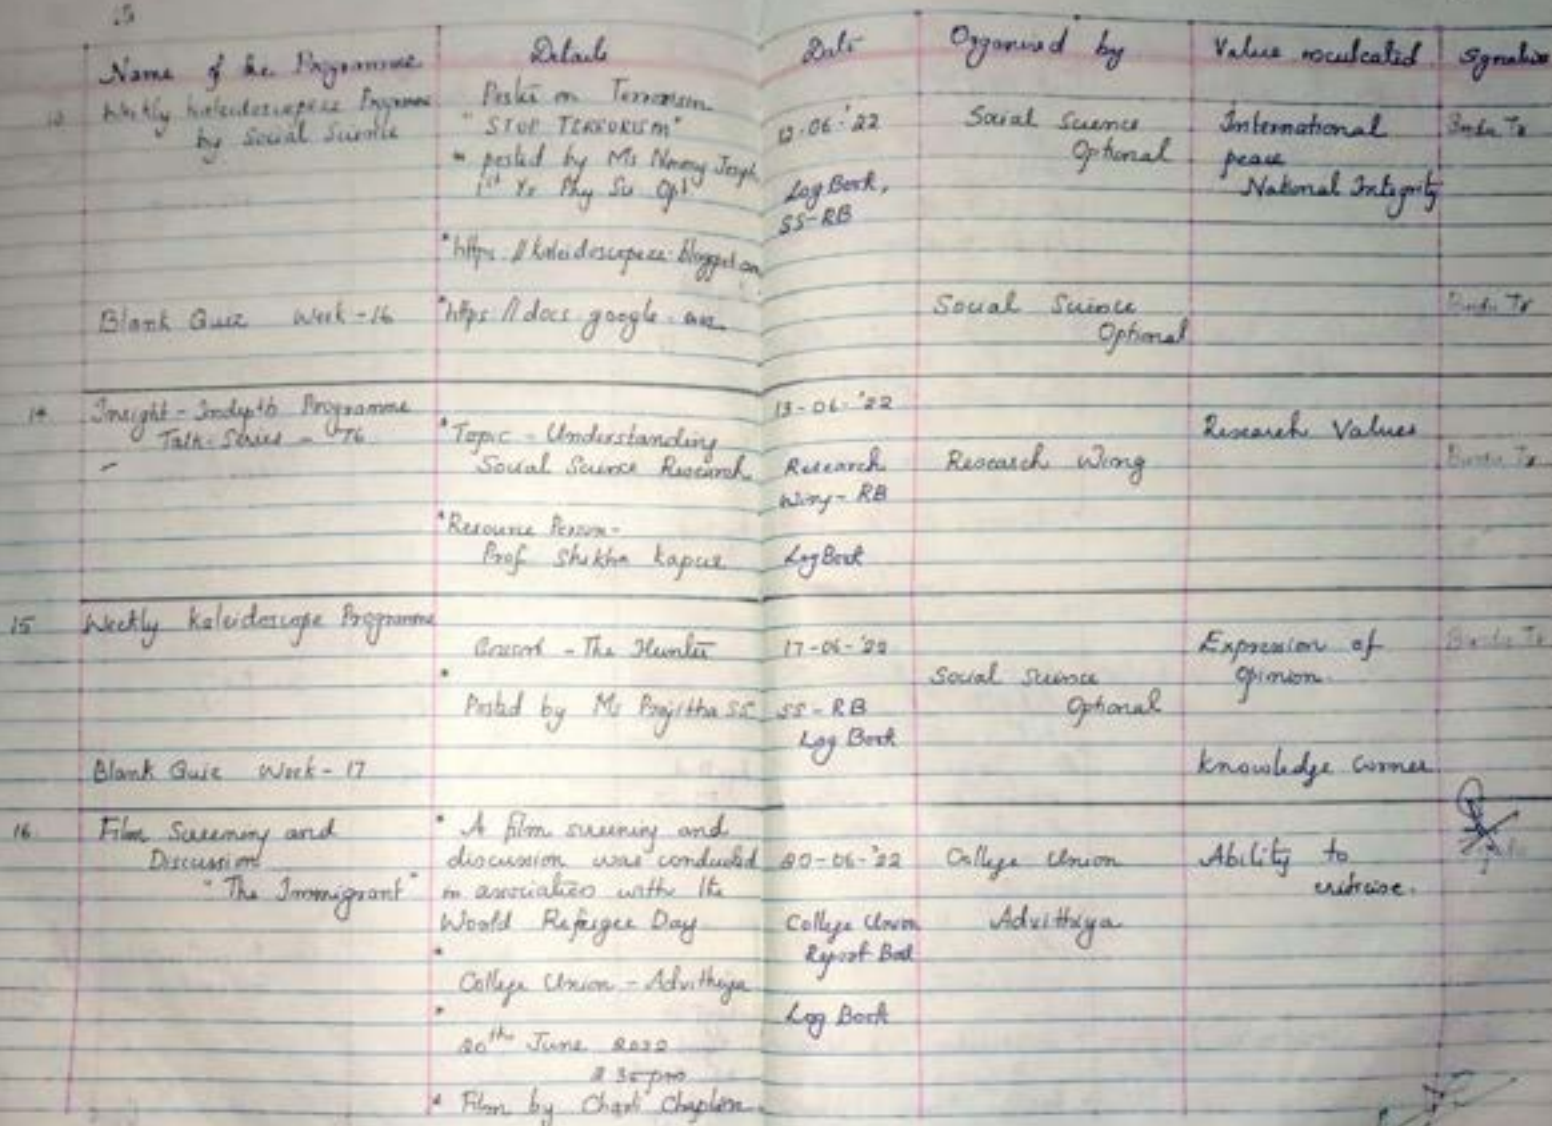 Name of the Programme
Details
Date
Organised by
Value inculcated
Signature
13
Weekly kaleidoscopeze Programme
by Social Science
Poster on Terrorism
" STOP TERRORISM"
posted by Ms Nimmy Joseph
1st Yr Phy Sc Opt
https://kaleidoscopeze.blogspot.com
12-06-'22
Log Book,
SS-RB
Social Science
Optional
International
peace
National Integrity
Bindu Tr
Blank Quiz Week-16
https://docs.google.com
Social Science
Optional
Bindu Tr
14
Insight-Indepth Programme
Talk-Series - 76
Topic - Understanding
Social Science Research
Resource Person-
Prof Shikha Kapur
13-06-'22
Research
Wing- RB
Log Book
Research Wing
Research Values
Bindu Tr
15
Weekly kaleidoscope Programme
- The Hunter
Posted by Ms Prajitha SS
17-06-'22
SS-RB
Log Book
Social Science
Optional
Expression of
Opinion.
Bindu Tr
Blank Quiz Week-17
Knowledge Corner
16
Film Screening and
Discussion
"The Immigrant"
A film screening and
discussion was conducted
in association with the
World Refugee Day
College Union - Advithiya
20th June 2022
2 35 pm
Film by Charli Chaplin
20-06-'22
College Union
Report Book
Log Book
College Union
Advithiya
Ability to
criticise.